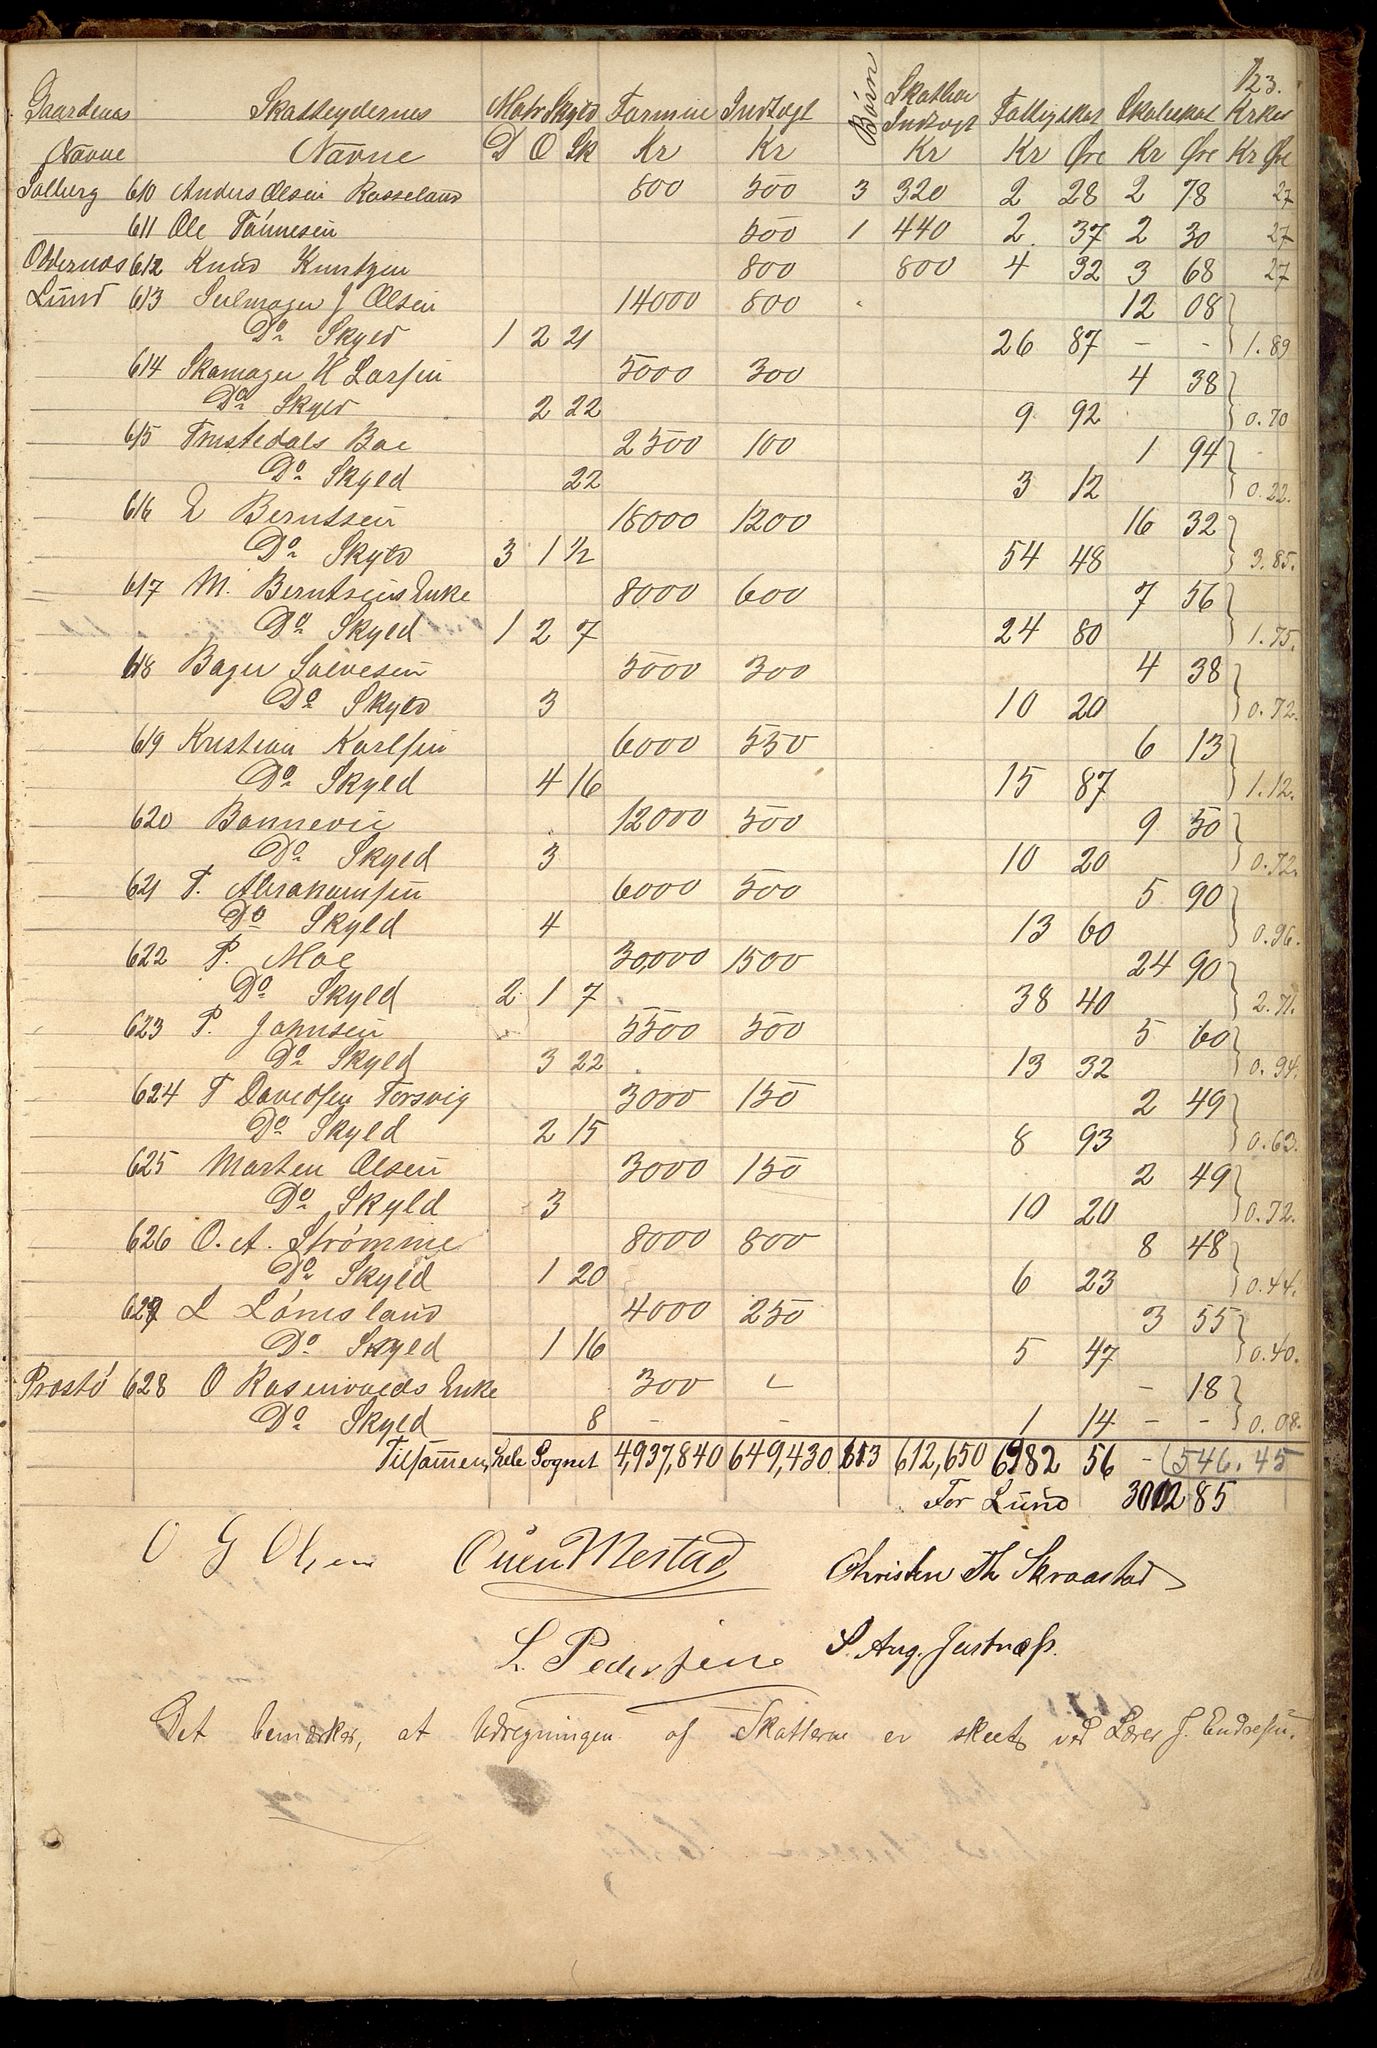 123.
Gaardenes Skatteydernes Matr Skyld Formue Indtægt Børn Skatbar Indtægt Fattigskat Skoleskat Kirkesk
Navne Navne D O Sk Kr Kr Kr Kr Øre Kr Øre Kr Øre
Solberg 610 Anders Olsen Rosseland 800 500 3 320 2 28 2 78 27
611 Ole Tönnesen 500 1 440 2 37 2 30 27
Odderness 612 Knud Knutzen 800 800 4 32 3 68 27
Lund 613 Seilmager J Olsen 14000 800 12 08
Do Skyld 1 2 21 26 87 - - 1.89
614 Skomager H Larsen 5000 300 4 38
Do Skyld 2 22 9 92 0.70
615 Tmstedals Boe 2500 100 1 94
Do Skyld 22 3 12 0.22.
616 E Berntsen 18000 1200 16 32
Do Skyld 3 1 ½ 54 48 3.85.
617 M. Berntsens Enke 8000 600 7 56
Do Skyld 1 2 7 24 80 1.75.
618 Bager Salvesen 5000 300 4 38
Do Skyld 3 10 20 0.72.
619 Kristian Karlsen 6000 550 6 13
Do Skyld 4 16 15 87 1.12.
620 Bonnevie 12000 500 9 50
Do Skyld 3 10 20 0.72.
621 T. Abrahamsen 6000 500 5 90
Do Skyld 4 13 60 0.96.
622 P. Moe 30,000 1500 24 90
Do Skyld 2 1 7 38 40 2.71.
623 P. Johnsen 5500 500 5 60
Do Skyld 3 22 13 32 0.94.
624 T Davidsen Torsvig 3000 150 2 49
Do Skyld 2 15 8 93 0.63.
625 Morten Olsen 3000 150 2 49
Do Skyld 3 10 20 0.72.
626 O. A. Strømme 8000 800 8 48
Do Skyld 1 20 6 23 0.44.
627 L Lömsland 4000 250 3 55
Do Skyld 1 16 5 47 0.40.
Præstö 628 O Rosenvolds Enke 300 - - 18
Do Skyld 8 - - 1 14 - - 0.08.
Tilsammen, hele Sognet 4,937,840 649,430 813 612,650 6982 56 - 546.45
For Lund 3012 85
O G Olsen Ouen Mestad Christen Th Skraastad
L. Pedersen S. Aug. Justnæss.
Det bemærkes, at Udregningen af Skatterne er skeet ved Lærer J. Endresen.